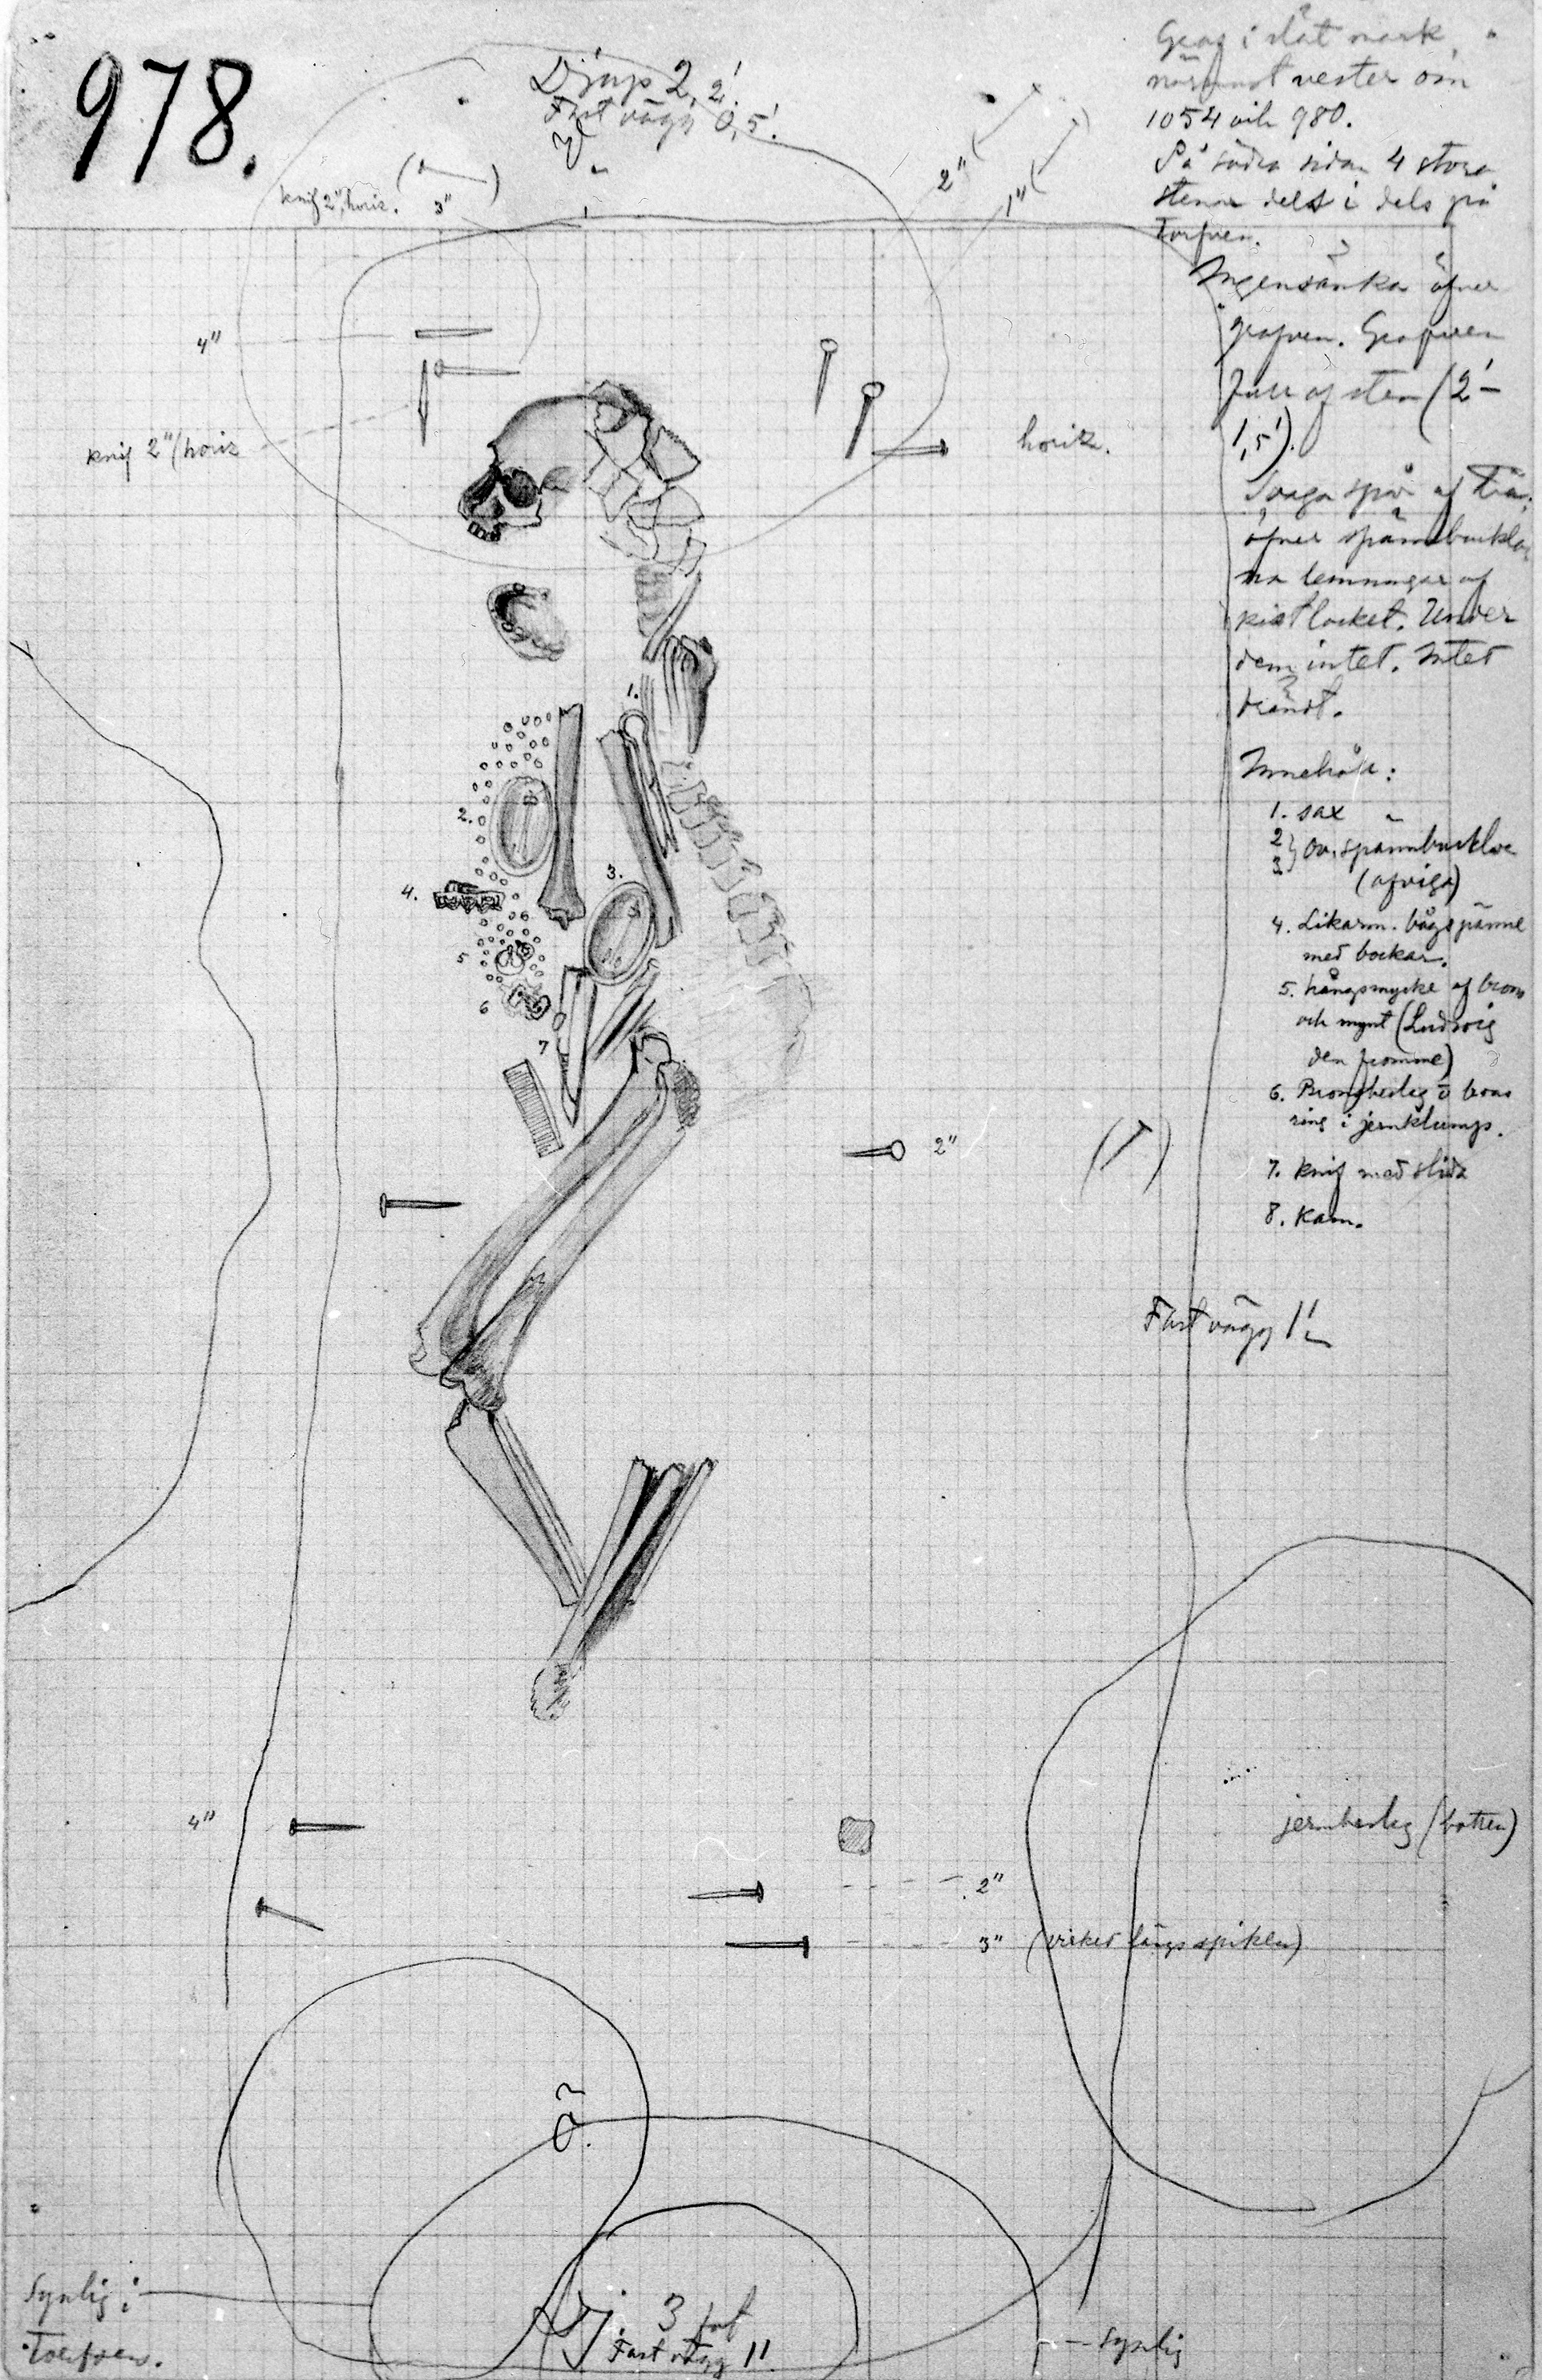 978.
Djup 2,2'.
Fast vägg 0,5'.
V
Graf i slät mark,
närmast vester om
1054 och 980.
På södra sidan 4 stora
stenar dels i dels på
torfven.
Ingen sänka öfver
grafven. Grafven
full af sten (2'–
1,5').
Svaga spår af trä;
öfver spännbucklor
na lemningar af
kistlocket. Under
dem intet. Intet
bränt.
Innehåll:
1. sax
2 } Ov. spännbucklor
3. (afviga)
4. Likarm. bågspänne
med bockar.
5. hängsmycke af brons
och mynt (Ludvig
den fromme)
6. Bronsbeslag o brons
ring i jernklump.
7. knif med slida
8. kam.
knif 2", horiz.
3"
2"
1"
4"
knif 2" (horiz
horiz.
1.
2.
3.
4.
5
6
7
2"
Fast vägg 1'
4"
jernbeslag (botten)
2"
3" (virket längs spiken)
Ö.
Synlig i
torfven.
Dj. 3 fot
Fast vägg 1'
synlig